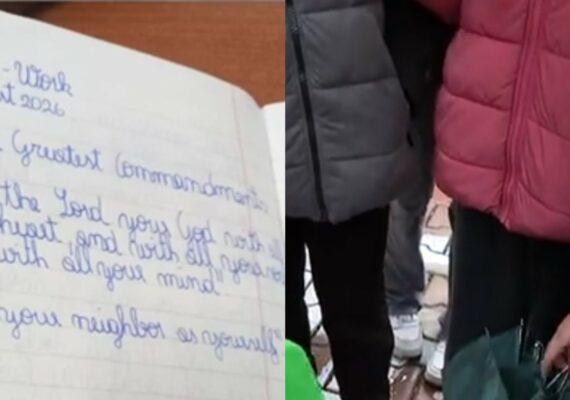 -Work
2026
Greatest Commandment
the Lord your God with all
heart, and with all your
with all your mind"
your neighbor as yourself"